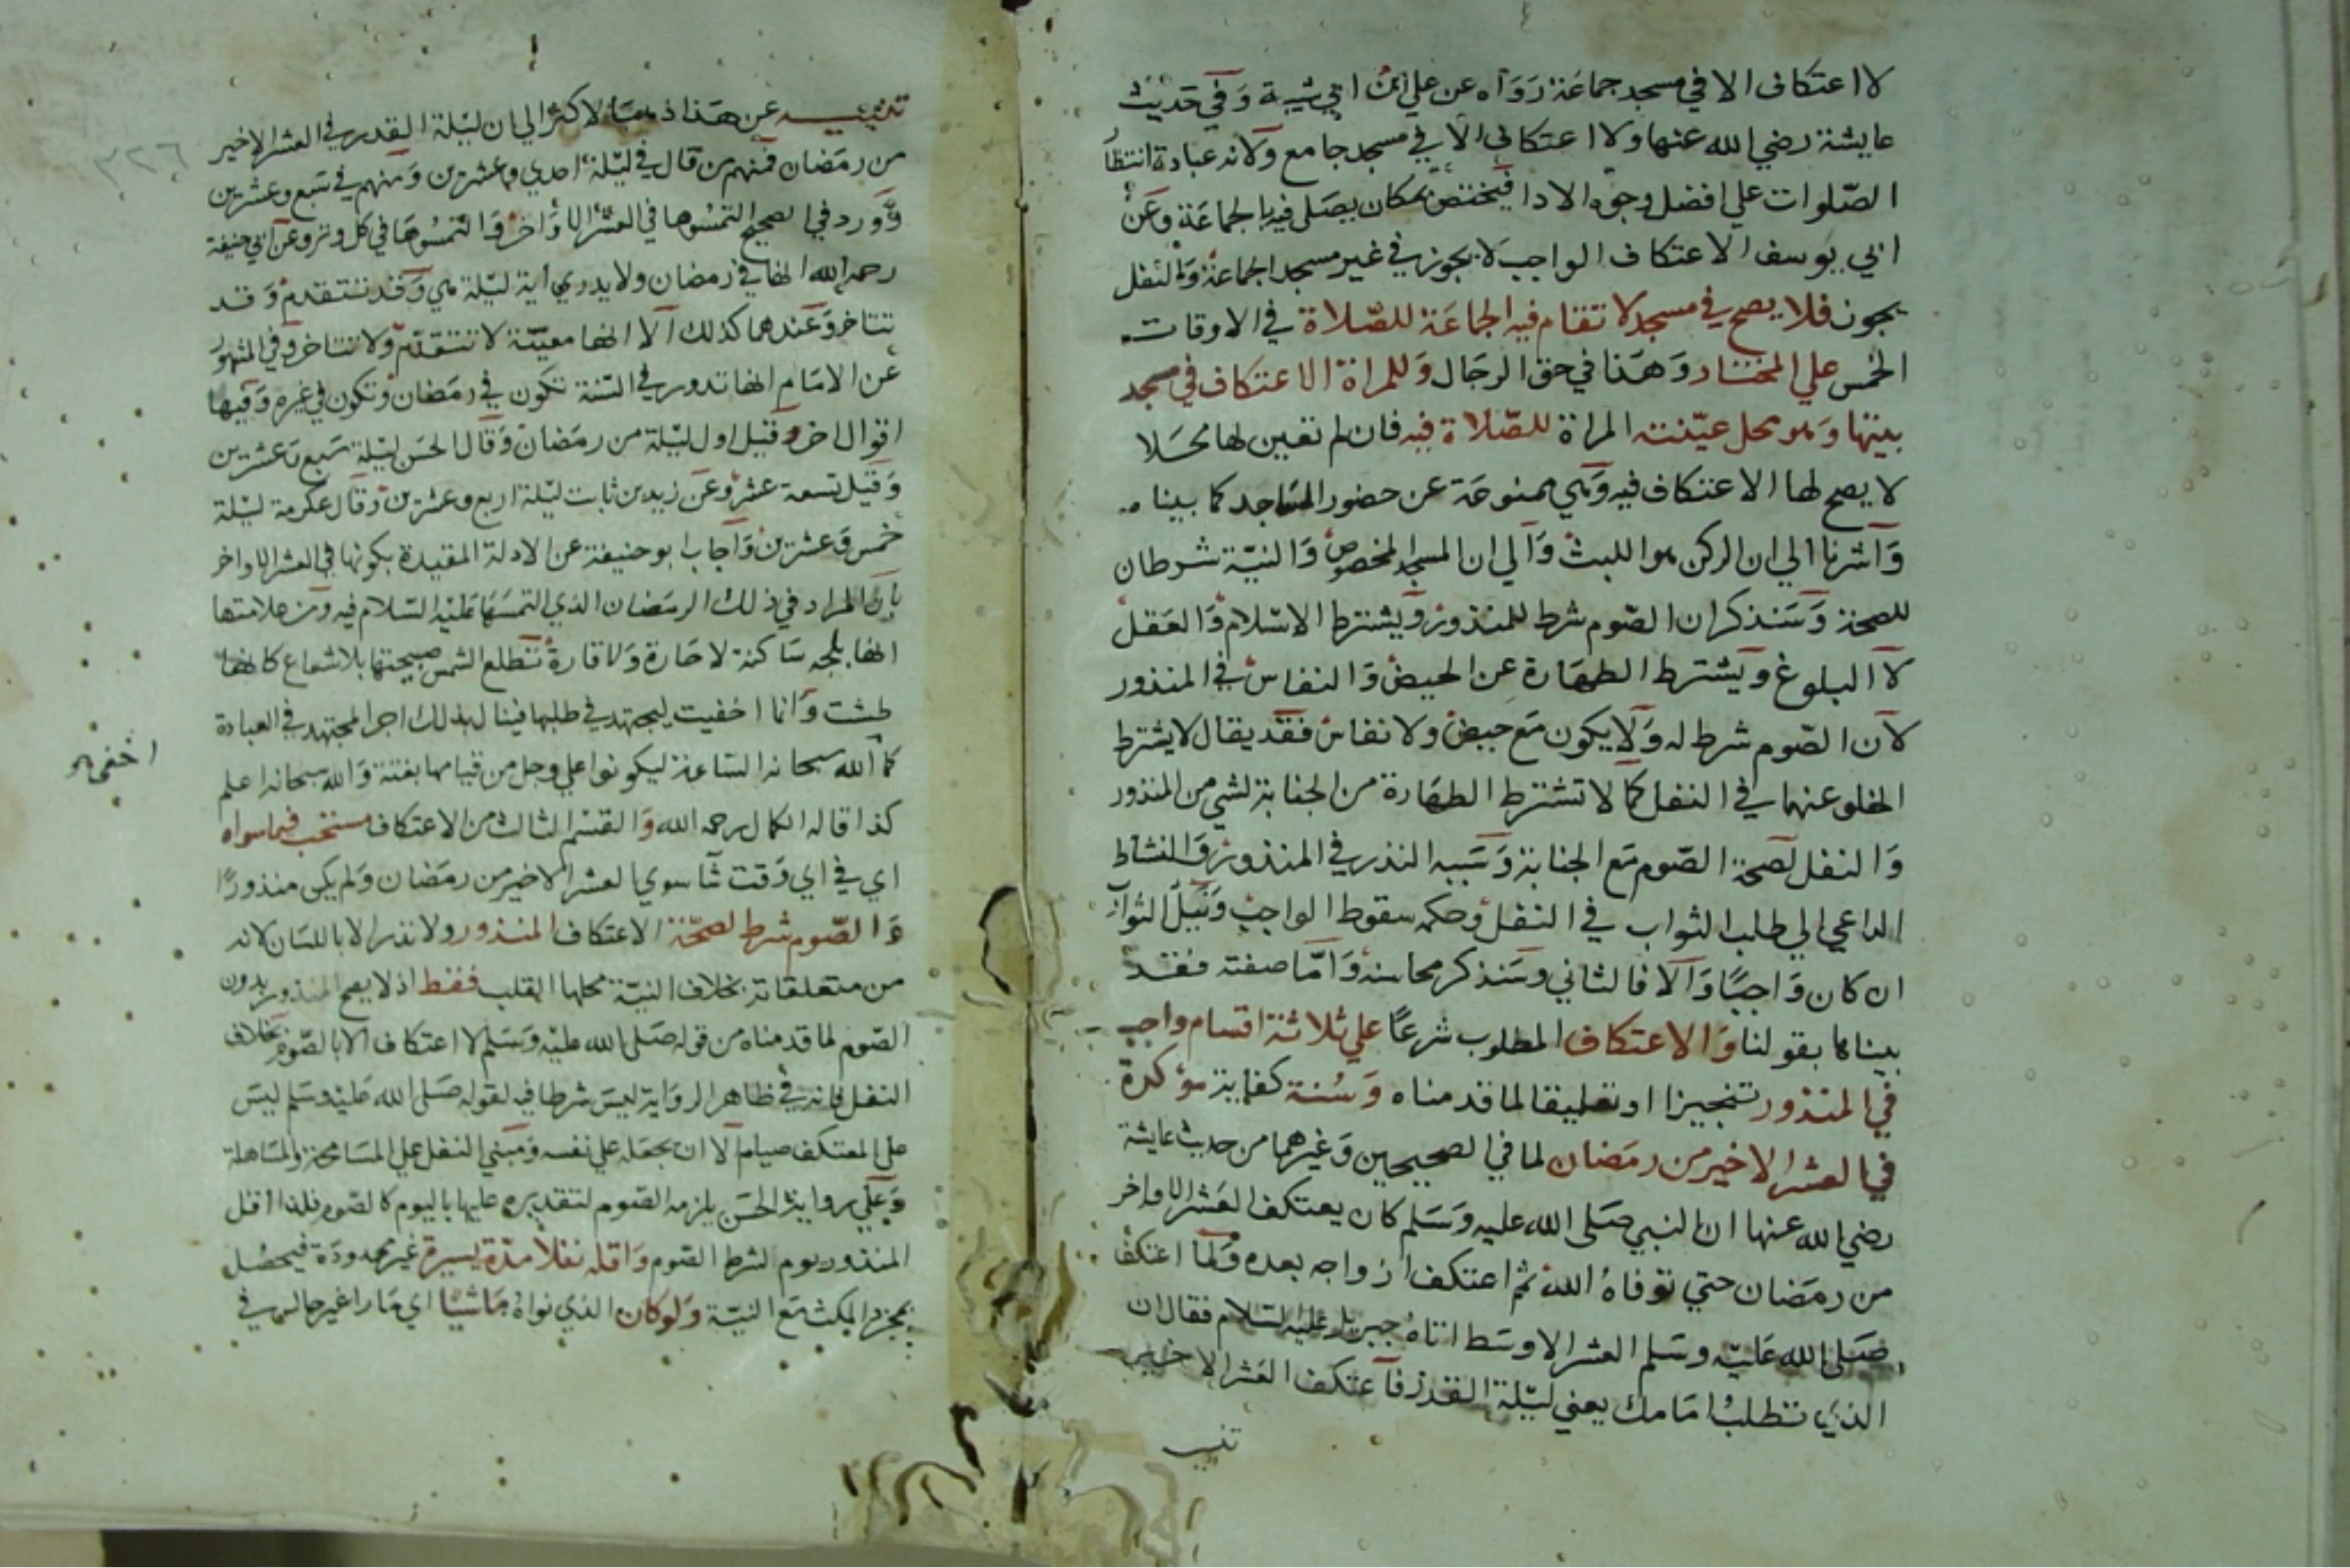 لا اعتكاف الا في مسجد جماعة رواه عن علي ابن ابي شيبة وفي حديث
عايشة رضي الله عنها ولا اعتكاف الا في مسجد جامع ولانه عبادة انتظار
الصلوات علي افضل وجوه الادا فيختص بمكان يصلي فيه بالجماعة وعن
ابي يوسف الاعتكاف الواجب لا يجوز في غير مسجد الجماعة والنفل
يجوز فلا يصح في مسجد لا تقام فيه الجماعة للصلاة في الاوقات
الخمس علي المختار وهذا في حق الرجال وللمراة الاعتكاف في مسجد
بيتها وهو محل عينته المراة للصلاة فيه فان لم تعين لها محلا
لا يصح لها الاعتكاف فيه وهي ممنوعة عن حضور المساجد كما بيناه
واشرنا الي ان الركن هو اللبث والي ان المسجد المخصوص والنية شرطان
للصحة وسنذكر ان الصوم شرط للمنذور ويشترط الاسلام والعقل
لا البلوغ ويشترط الطهارة عن الحيض والنفاس في المنذور
لان الصوم شرط له ولا يكون مع حيض ولا نفاس فقد يقال لا يشترط
الخلو عنهما في النفل كما لا تشترط الطهارة من الجنابة لشي من المنذور
والنفل لصحة الصوم مع الجنابة وسببه النذر في المنذور والنشاط
الداعي الي طلب الثواب في النفل وحكمه سقوط الواجب ونيل الثواب
ان كان واجبا والا فالثاني وسنذكر محاسنه واما صفته فقد
بيناها بقولنا والاعتكاف المطلوب شرعا علي ثلاثة اقسام واجب
في المنذور تنجيزا او تعليقا لما قدمناه وسنة كفاية مؤكدة
في العشر الاخير من رمضان لما في الصحيحين وغيرهما من حديث عايشة
رضي الله عنها ان النبي صلى الله عليه وسلم كان يعتكف العشر الاواخر
من رمضان حتي توفاه الله ثم اعتكف ازواجه بعده ولما اعتكف
صلى الله عليه وسلم العشر الاوسط اتاه جبريل عليه السلام فقال ان
الذي تطلب امامك يعني ليلة القدر فاعتكف العشر الاخير
تنبيه
٣٢٦
تنبيه عن هذا ذهب الاكثر الي ان ليلة القدر في العشر الاخير
من رمضان فمنهم من قال في ليلة احدي وعشرين ومنهم في سبع وعشرين
وورد في الصحيح التمسوها في العشر الاواخر والتمسوها في كل وتر وعن ابي حنيفة
رحمه الله انها في رمضان ولا يدري اية ليلة هي وقد تتقدم وقد
تتاخر وعندهما كذلك الا انها معينة لا تتقدم ولا تتاخر وفي المشهور
عن الامام انها تدور في السنة تكون في رمضان وتكون في غيره وفيها
اقوال اخر وقيل اول ليلة من رمضان وقال الحسن ليلة سبع وعشرين
وقيل تسعة عشر وعن زيد بن ثابت ليلة اربع وعشرين وقال عكرمة ليلة
خمس وعشرين واجاب ابو حنيفة عن الادلة المقيدة بكونها في العشر الاواخر
بان المراد في ذلك الرمضان الذي التمسها عليه السلام فيه ومن علامتها
انها بلجه ساكنة لا حارة ولا قارة تطلع الشمس صبيحتها بلا شعاع كانها
طشت وانما اخفيت ليجتهد في طلبها فينال بذلك اجر المجتهد في العبادة
كما الله سبحانه الساعة ليكونوا علي وجل من قيامها بغتة والله سبحانه اعلم
اخفي
كذا قاله الكمال رحمه الله والقسم الثالث من الاعتكاف مستحب فيما سواه
اي في اي وقت شا سوي العشر الاخير من رمضان ولم يكن منذورا
والصوم شرط لصحة الاعتكاف المنذور ولا نذر الا باللسان لانه
من متعلقاته بخلاف النية محلها القلب فقط اذ لا يصح المنذور بدون
الصوم لما قدمناه من قوله صلى الله عليه وسلم لا اعتكاف الا بالصوم بخلاف
النفل فانه في ظاهر الرواية ليس شرطا فيه لقوله صلى الله عليه وسلم ليس
على المعتكف صيام الا ان يجعله علي نفسه ومبني النفل علي المسامحة والمساهلة
وعلي رواية الحسن يلزمه الصوم لتقديره عليها باليوم كالصوم فلذا اقل
المنذور يوم لشرط الصوم واقله نفلا مدة يسيرة غير محدودة فيحصل
بمجرد المكث مع النية ولو كان الذي نواه ماشيا اي مارا غير جالس في